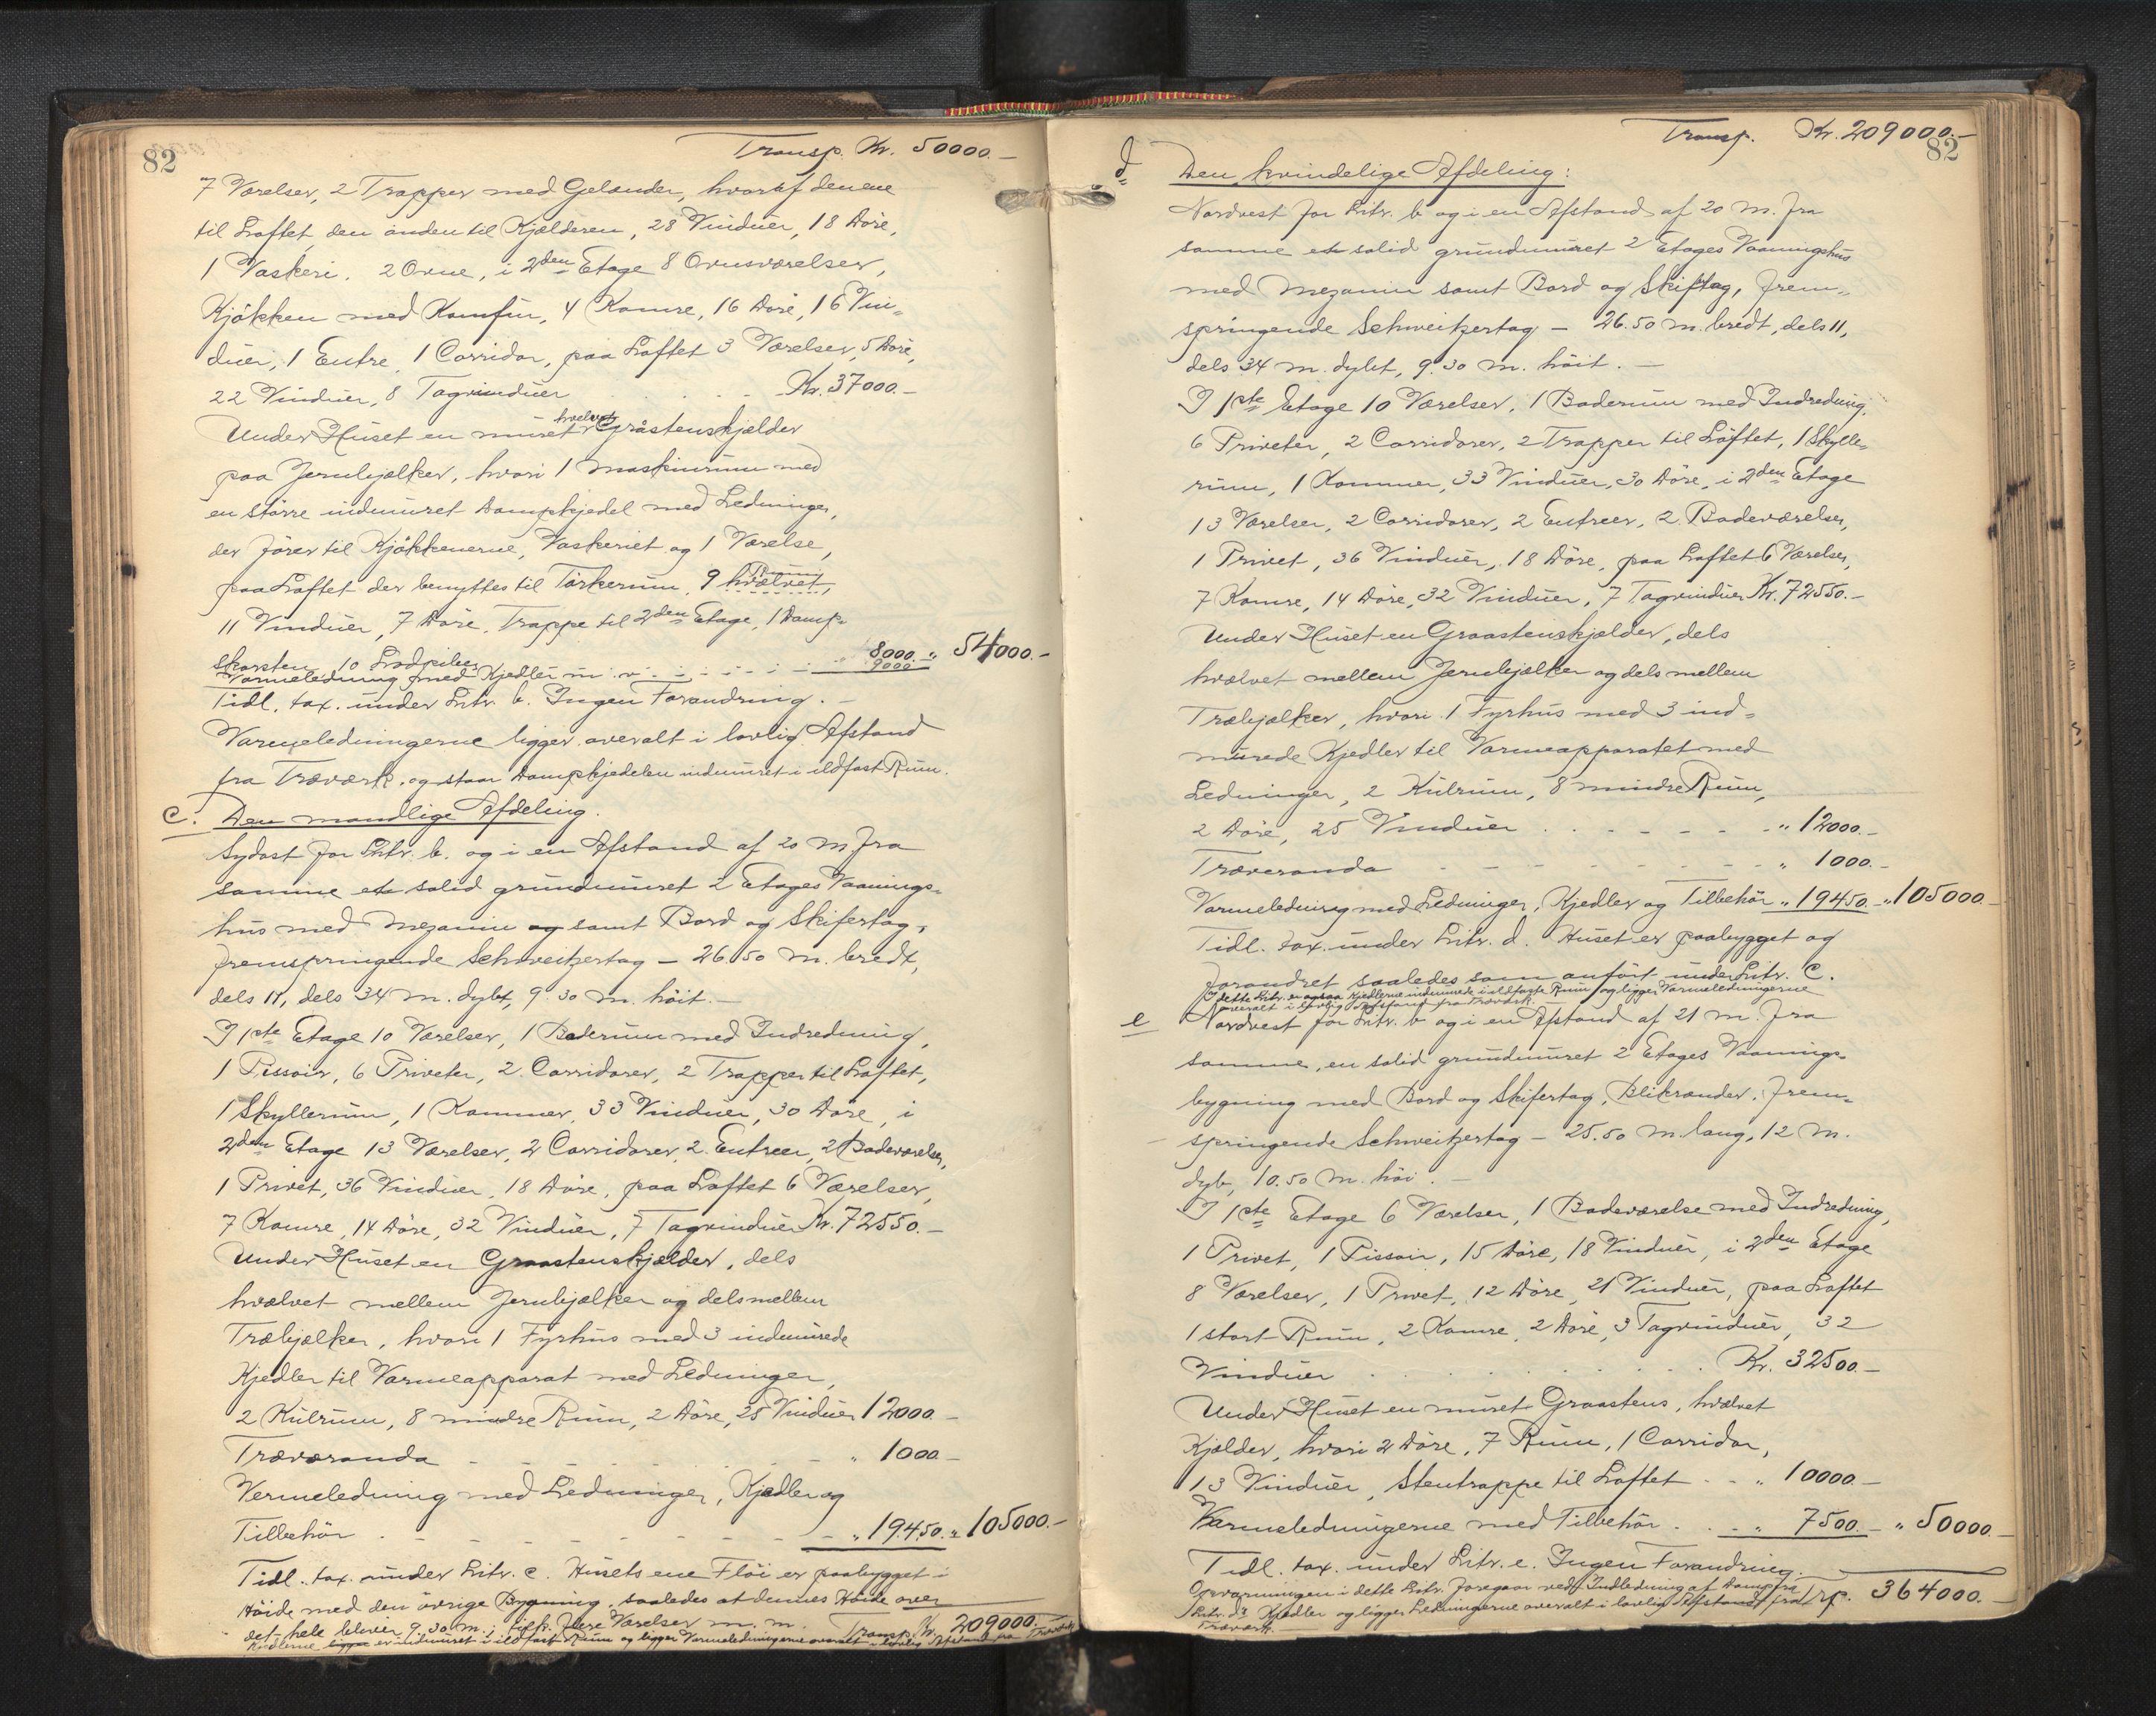 82
Transp. Kr. 50000.-
7 Værelser, 2 Trapper med Gelænder, hvoraf den ene
til Loftet, den anden til Kjælderen, 28 Vinduer, 18 Döre,
1 Vaskeri, 2 Ovne, i 2den Etage 8 Ovnsværelser,
Kjökken med Komfur, 4 Kamre, 16 Döre, 16 Vin-
duer, 1 Entre, 1 Corridor, paa Loftet 3 Værelser, 5 Döre,
22 Vinduer, 8 Tagvinduer . . . . Kr. 37000.-
Under Huset en muret hvelvet Gråstenskjælder
paa Jernbjælker, hvori 1 Maskinrum med
en större indmuret Dampkjedel med Ledninger,
der förer til Kjökkenerne, Vaskeriet og 1 Værelse,
paa Loftet der benyttes til Törkerum, 9 Rum hvælvet,
11 Vinduer, 7 Döre, Trappe til 2den Etage, 1 Damp-
skorsten, 10 Lodpiber 8000.- " 54000.-
Varmeledning med Kjedler m. v. - - - - - 9000.
Tidl. tax. under Litr. b. Ingen Forandring. -
Varmeledningerne ligger overalt i lovlig Afstand
fra Træværk, og staar Dampkjedelen indmuret i ildfast Rum.
c. Den mandlige Afdeling.
Sydost for Litr. b. og i en Afstand af 20 M fra
samme et solid grundmuret 2 Etages Vaanings-
hus med Mezanin og samt Bord og Skifertag,
fremspringende Schweitzertag - 26.50 M. bredt,
dels 11, dels 34 M. dybt, 9.30 M. höit. -
I 1ste Etage 10 Værelser, 1 Baderum med Indredning,
1 Pissoir, 6 Priveter, 2 Corridorer, 2 Trapper til Loftet,
1 Skyllerum, 1 Kammer, 33 Vinduer, 30 Döre, i
2den Etage 13 Værelser, 2 Corridorer, 2 Entreer, 2 Badeværelser,
1 Privet, 36 Vinduer, 18 Döre, paa Loftet 6 Værelser,
7 Kamre, 14 Döre, 32 Vinduer, 7 Tagvinduer Kr. 72550.-
Under Huset en Graastenskjælder, dels
hvælvet mellem Jernbjælker og dels mellem
Træbjælker, hvori 1 Fyrhus med 3 indmurede
Kjedler til Varmeapparat med Ledninger,
2 Kulrum, 8 mindre Rum, 2 Döre, 25 Vinduer 12000.-
Træveranda - - - - - - " 1000.-
Vermeledning med Ledninger, Kjedler og
Tilbehör . - - - - - - - " 19450. " 105000.-
Tidl. tax. under Litr. c. Husets ene Flöi er paabygget i
Höide med den övrige Bygning, saaledes at dennes Höide over
det hele bliver 9.30 M.; tilf. flere Værelser m. m. Transp. Kr. 209000.-
Kjedlerne ligger er indmuret i ildfast Rum og ligger Varmeledningerne overalt i lovlig Afstand fra Træværk.
Transp. Kr. 209000.-
82
d. Den kvindelige Afdeling:
Nordvest for Litr. b og i en Afstand af 20 M. fra
samme et solid grundmuret 2 Etages Vaaningshus
med Mezanin samt Bord og Skiftag, frem-
springende Schweitzertag - 26.50 M. bredt, dels 11,
dels 34 M. dybt, 9.30 M. höit. -
I 1ste Etage 10 Værelser, 1 Baderum med Indredning,
6 Priveter, 2 Corridorer, 2 Trapper til Loftet, 1 Skylle-
rum, 1 Kammer, 33 Vinduer, 30 Döre, i 2den Etage
13 Værelser, 2 Corridorer, 2 Entreer, 2 Badeværelser,
1 Privet, 36 Vinduer, 18 Döre, paa Loftet 6 Værelser,
7 Kamre, 14 Döre, 32 Vinduer, 7 Tagvinduer Kr. 72550.-
Under Huset en Graastenskjælder, dels
hvælvet mellem Jernbjælker og dels mellem
Træbjælker, hvori 1 Fyrhus med 3 ind-
murede Kjedler til Varmeapparatet med
Ledninger, 2 Kulrum, 8 mindre Rum,
2 Döre, 25 Vinduer . - - - - " 12000.-
Træveranda - - - - - - " 1000.-
Varmeledning med Ledninger, Kjedler og Tilbehör " 19450.- " 105000.-
Tidl. tax. under Litr. d. Huset er paabygget og
forandret saaledes som anfört under Litr. c.
I dette Litr. er ogsaa Kjedlerne indmurede i ildfaste Rum og ligger Varmeledningerne
overalt i lovlig Afstand fra Træværk. -
e Nordvest for Litr. b og i en Afstand af 21 M. fra
samme, en solid grundmuret 2 Etages Vaanings-
bygning med Bord og Skifertag, Blikrander, frem-
springende Schweitzertag - 25.50 M. lang, 12 M.
dyb, 10.50 M. höi. -
I 1ste Etage 6 Værelser, 1 Badeværelse med Indredning,
1 Privet, 1 Pissoir, 15 Döre, 18 Vinduer, i 2den Etage
8 Værelser, 1 Privet, 12 Döre, 21 Vinduer, paa Loftet
1 stort Rum, 2 Kamre, 2 Döre, 3 Tagvinduer, 32
Vinduer . . . . . . . Kr. 32500.-
Under Huset en muret Graastens, hvælvet
Kjælder, hvori 2 Döre, 7 Rum, 1 Corridor,
13 Vinduer, Stentrappe til Loftet - - " 10000.-
Varmeledningerne med Tilbehör . . - " 7500.- " 50000.-
Tidl. tax. under Litr. e. Ingen Forandring.
Opvarmningen i dette Litr. foregaar ved Indledning af Damp fra Trp. 364000.-
Litr. d's Kjedler og ligger Ledningerne overalt i lovlig Afstand fra
Træværk.